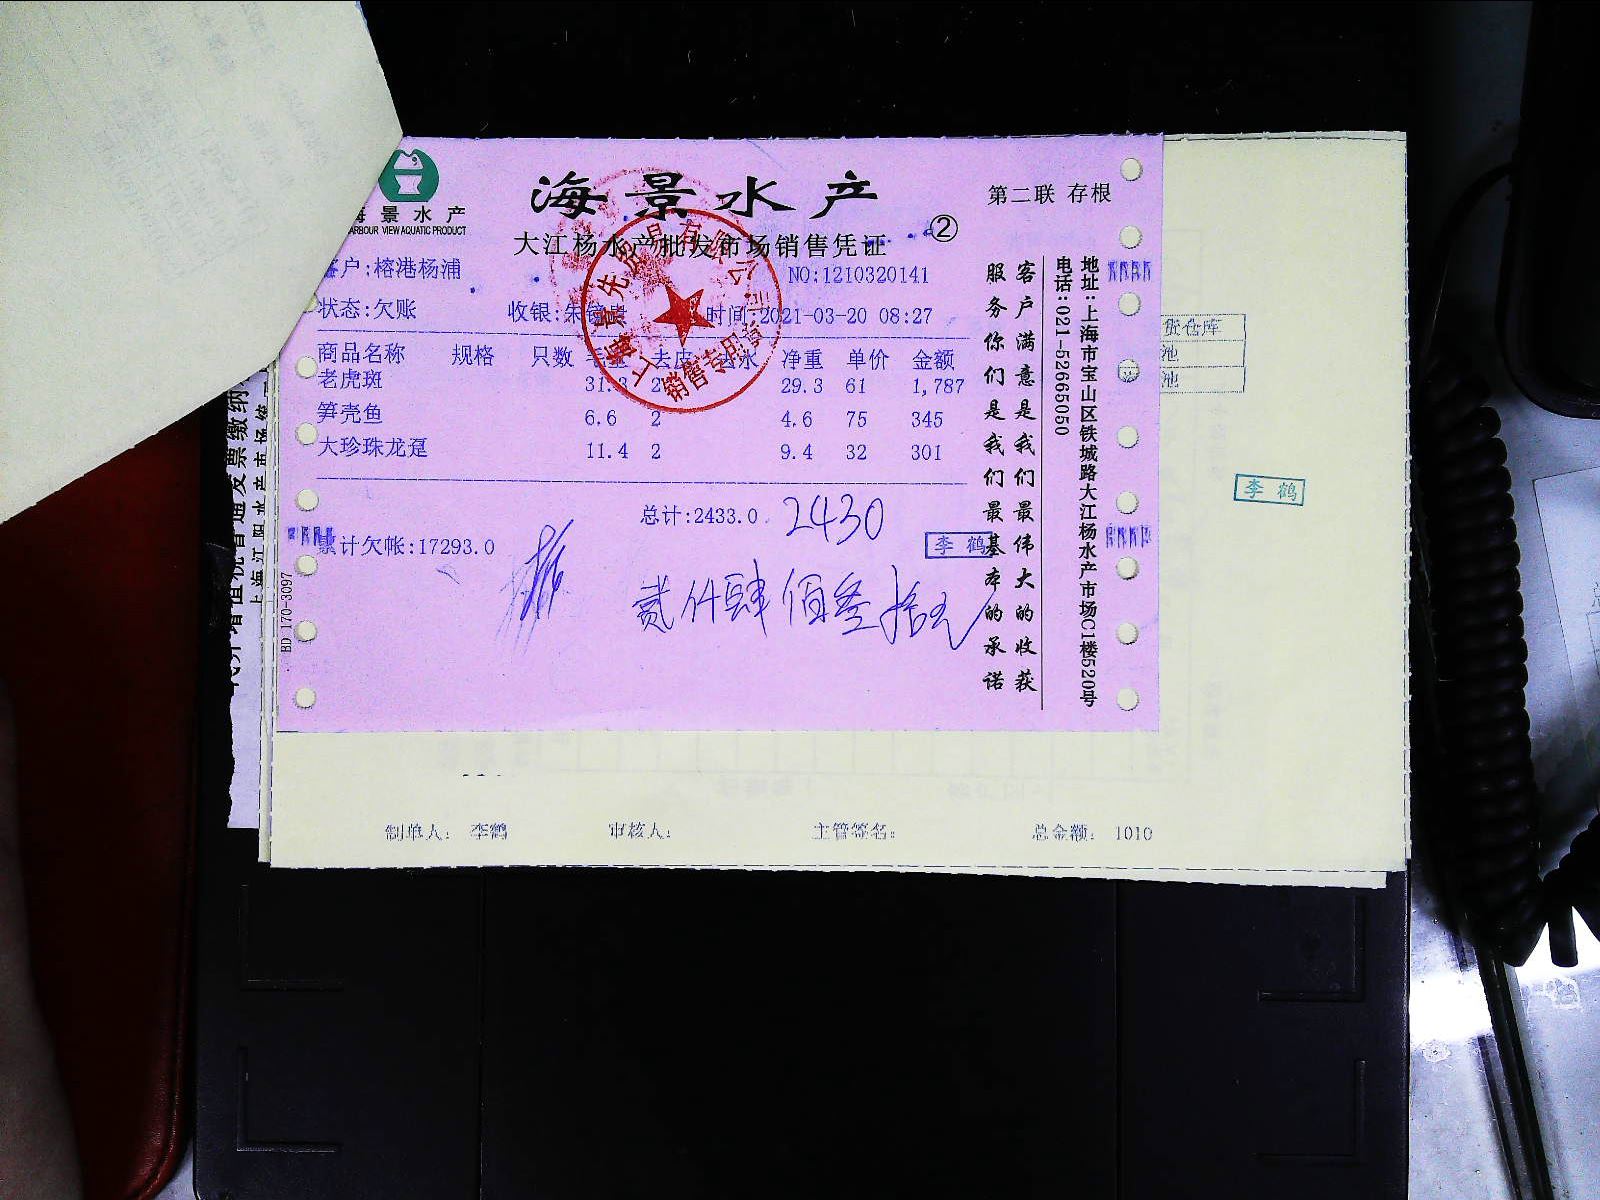 海景水产
第二联 存根
景水产
ARBOUR VIEW AQUATIC PRODUCT
大江杨水产批发市场销售凭证 ②
客户:榕港杨浦
NO:1210320141
状态:欠账 收银:朱 时间:2021-03-20 08:27
商品名称 规格 只数 毛重 去皮 去水 净重 单价 金额
老虎斑 31.3 2 29.3 61 1,787
笋壳鱼 6.6 2 4.6 75 345
大珍珠龙趸 11.4 2 9.4 32 301
总计:2433.0 2430
累计欠帐:17293.0
李鹤
贰仟肆佰叁拾元
BD 170-3097
销售专用章
客户满意是我们最伟大的收获
服务你们是我们最基本的承诺
地址:上海市宝山区铁城路大江杨水产市场C1楼520号
电话:021-52665050
货仓库
池
池
李鹤
制单人: 李鹤 审核人: 主管签名: 总金额: 1010